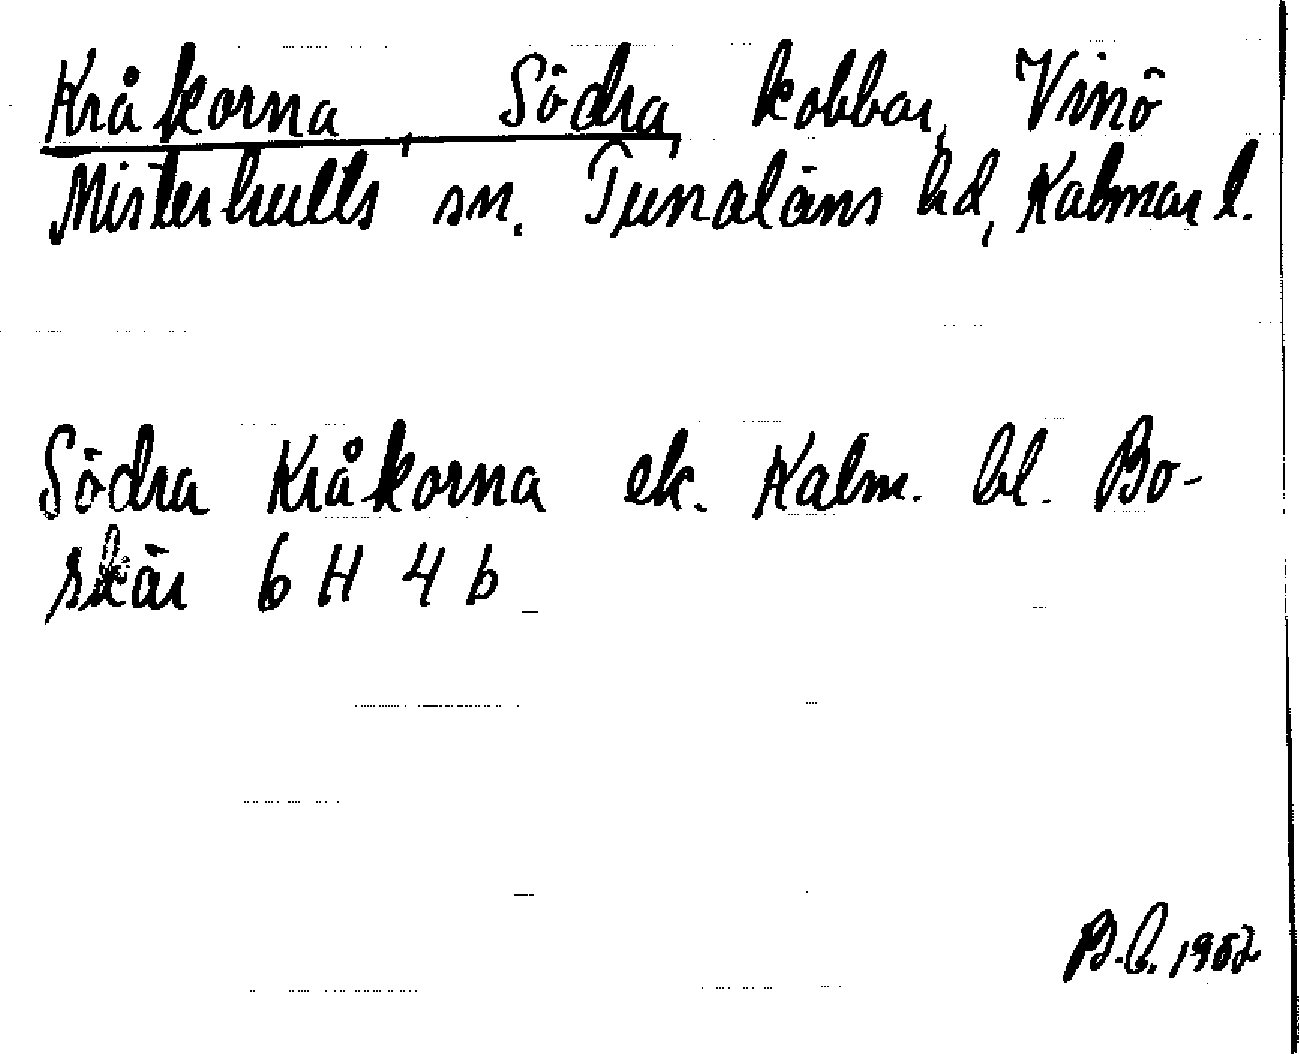 Kråkorna, Södra, kobbar, Vinö
Misterhults sn. Tunaläns hd, Kalmar l.
Södra Kråkorna ek. Kalm. bl. Bo-
skär 6 H 4 b
B.C. 1952